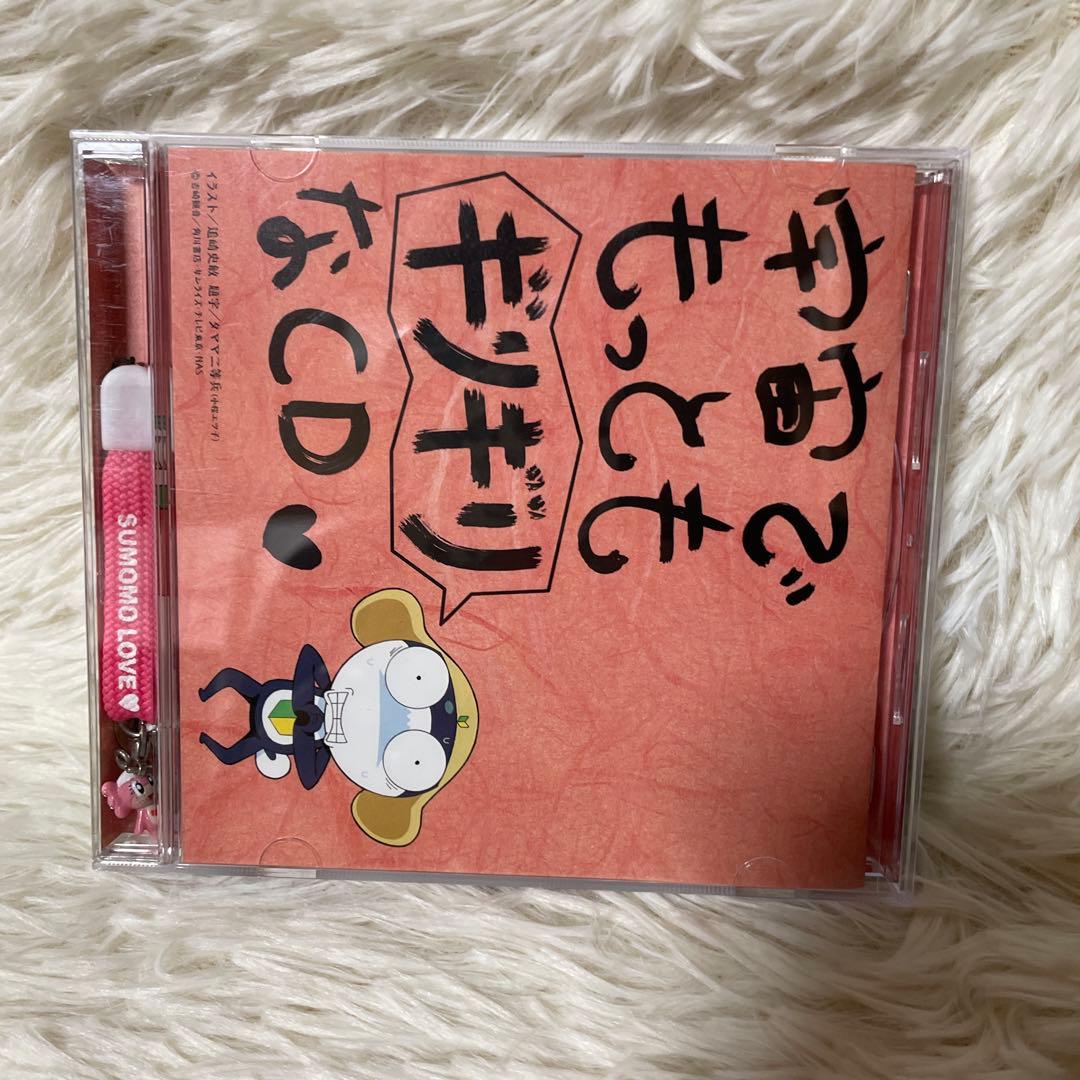 宇宙で
もっとも
ギリギリ
なCD♥
イラスト/追崎史敏 題字/タママ二等兵(小桜エツ子)
©吉崎観音/角川書店・サンライズ・テレビ東京・NAS
SUMOMO LOVE♥